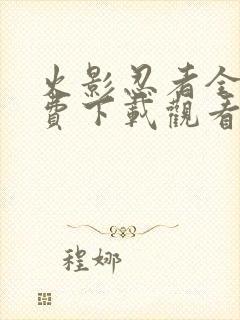 火影忍者全
費下載觀看
程娜